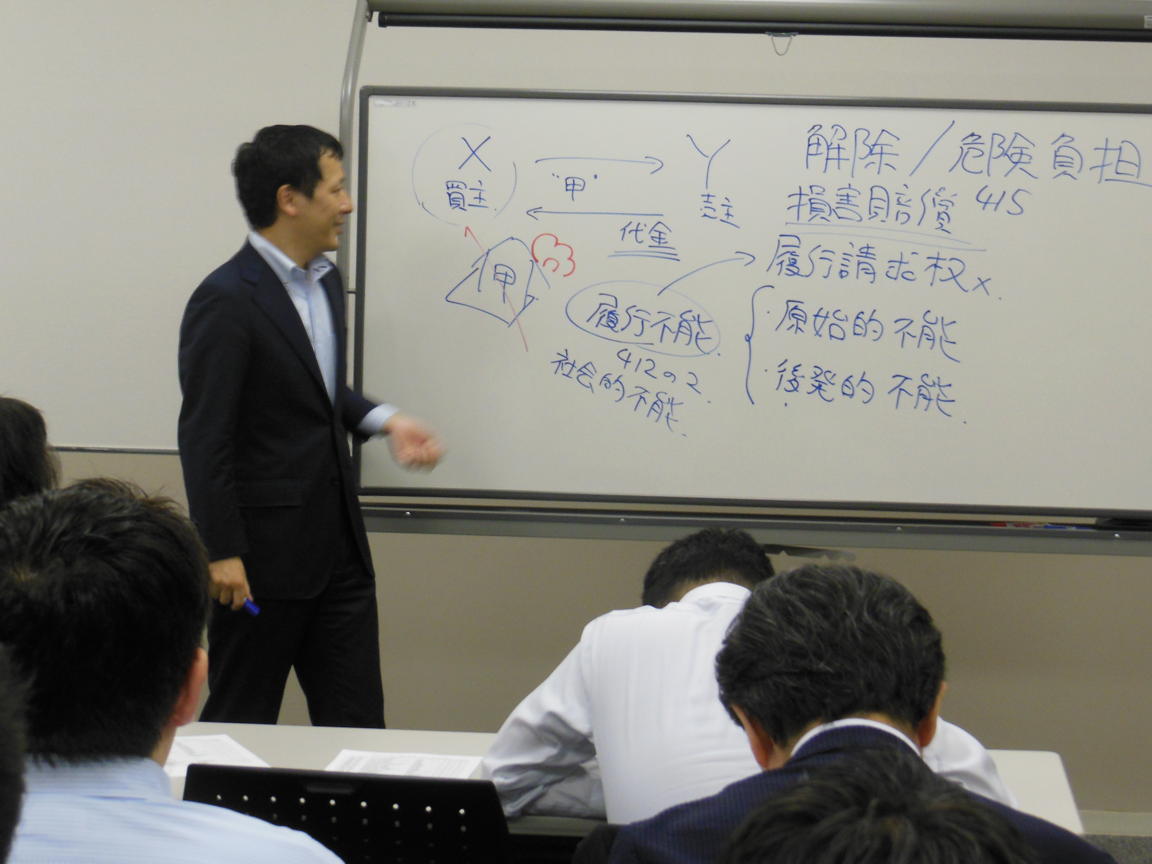 X
買主
"甲"
Y
売主
代金
甲
履行不能
412の2
社会的不能
解除/危険負担
損害賠償 415
履行請求权x
・原始的不能
・後発的不能